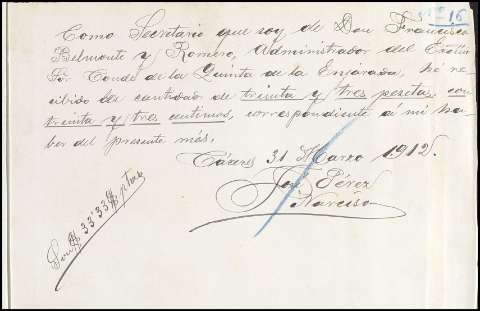 Nº 16
Como Secretario que soy de Don Francisco
Belmonte y Romero, Administrador del Exctmo
Sor Conde de la Quinta de la Enjarada, hé re-
cibido la cantidad de treinta y tres pesetas con
treinta y tres centimos, correspondiente á mi ha-
ber del presente més.
Cáceres 31 Marzo 1912.
José Pérez
Narciso
Son # 33'33 # ptas